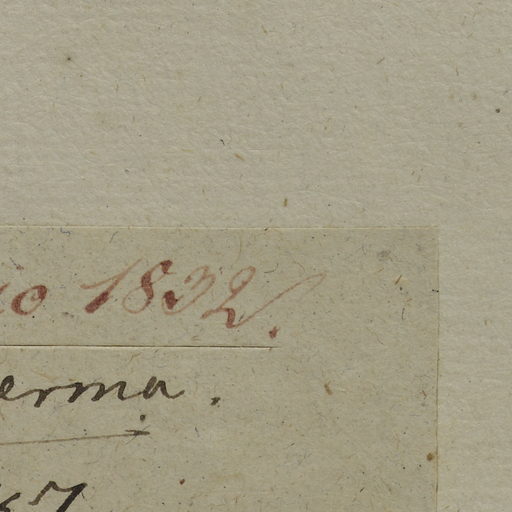 io 1832.
erma.
67